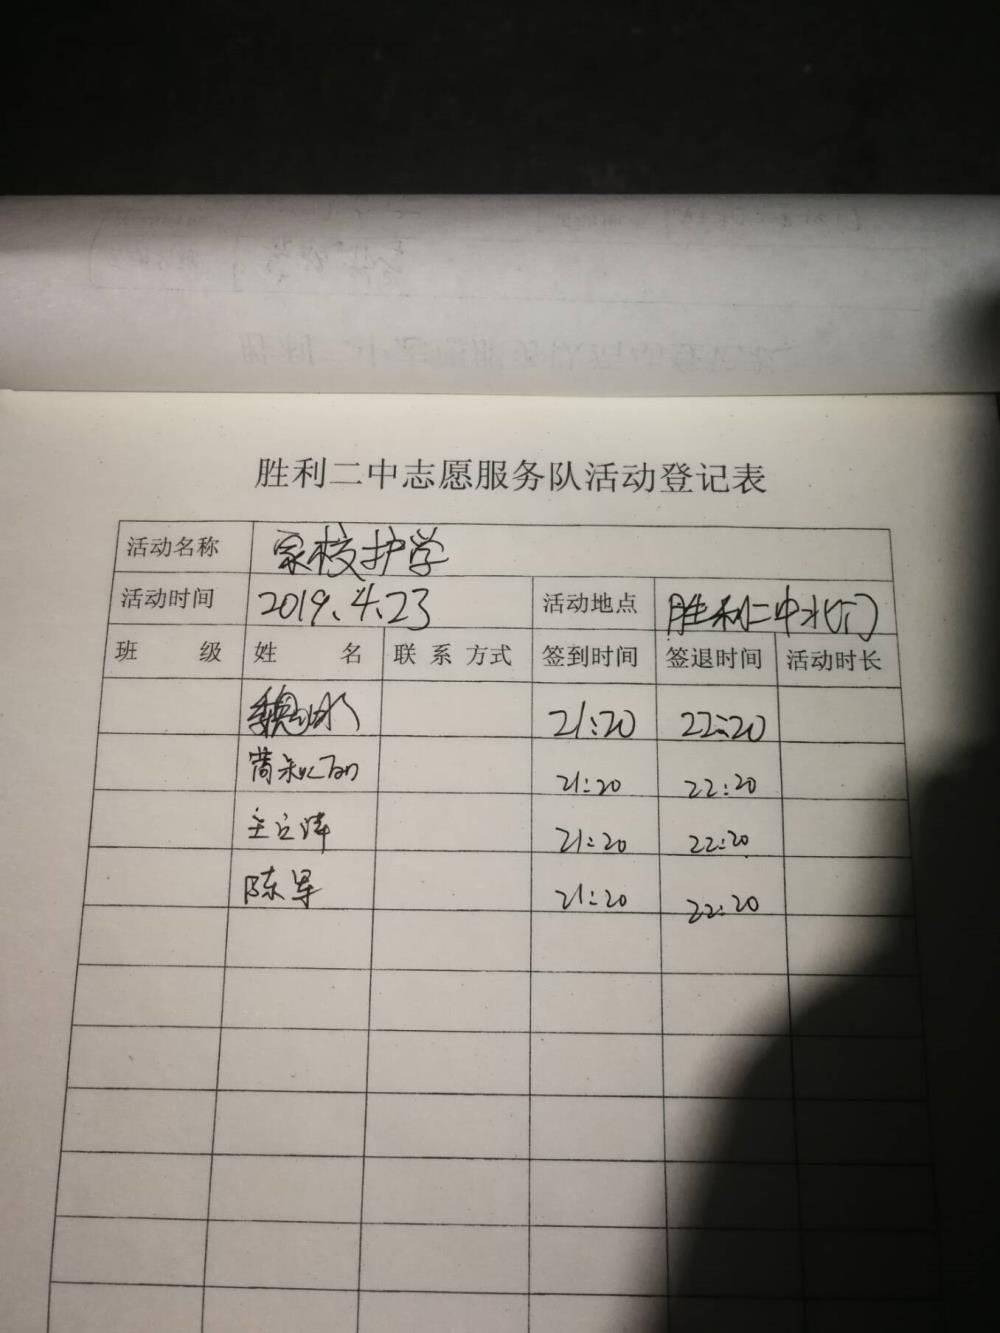 胜利二中志愿服务队活动登记表
活动名称 家校护学
活动时间 2019.4.23 活动地点 胜利二中北门
班 级 姓 名 联系方式 签到时间 签退时间 活动时长
21:20 22:20
21:20 22:20
21:20 22:20
陈军 21:20 22:20